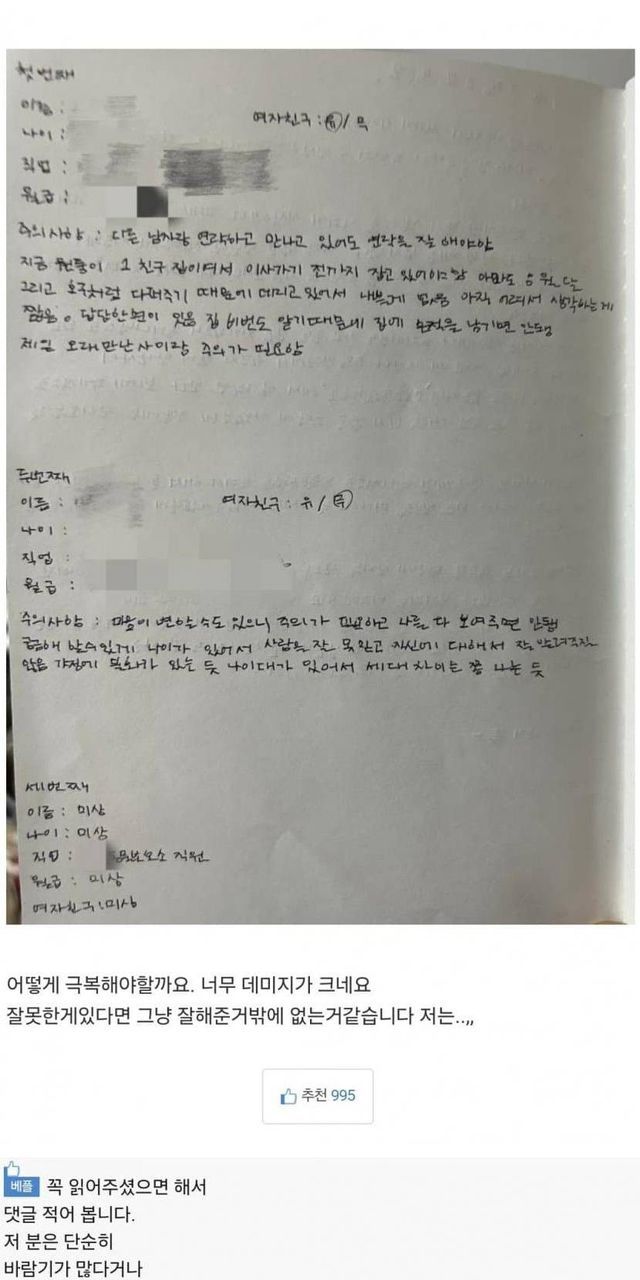 첫번째
이름 :
여자친구 : 유 / 무
나이 :
직업 :
월급 :
주의사항 : 다른 남자랑 연락하고 만나고 있어도 연락을 잘 해야함
지금 이 그 친구 집이여서 이사가기 전까지 잡고 있어야함 아마도
그리고 호구처럼 다 퍼주기 때문에 데리고 있어서 나쁠게 없음 아직 어려서 생각하는게
짧음. 답답한면이 있음 집 비번도 알기때문에 집에 흔적을 남기면 안됌
제일 오래만난사이라 주의가 필요함
두번째
이름 :
여자친구 : 유 /
나이 :
직업 :
월급 :
주의사항 : 마음이 변할수도 있으니 주의가 필요하고 나를 다 보여주면 안됌
나이가 있어서 사람을 잘 못믿고 자신에 대해서 잘
않음 가정에 불화가 있는 듯 나이대가 있어서 세대차이는 쫌 나는 듯
세번째
이름 : 미상
나이 : 미상
직업 : 직원
월급 : 미상
여자친구 : 미상
어떻게 극복해야할까요. 너무 데미지가 크네요
잘못한게있다면 그냥 잘해준거밖에 없는거같습니다 저는..,,
추천 995
베플 꼭 읽어주셨으면 해서
댓글 적어 봅니다.
저 분은 단순히
바람기가 많다거나